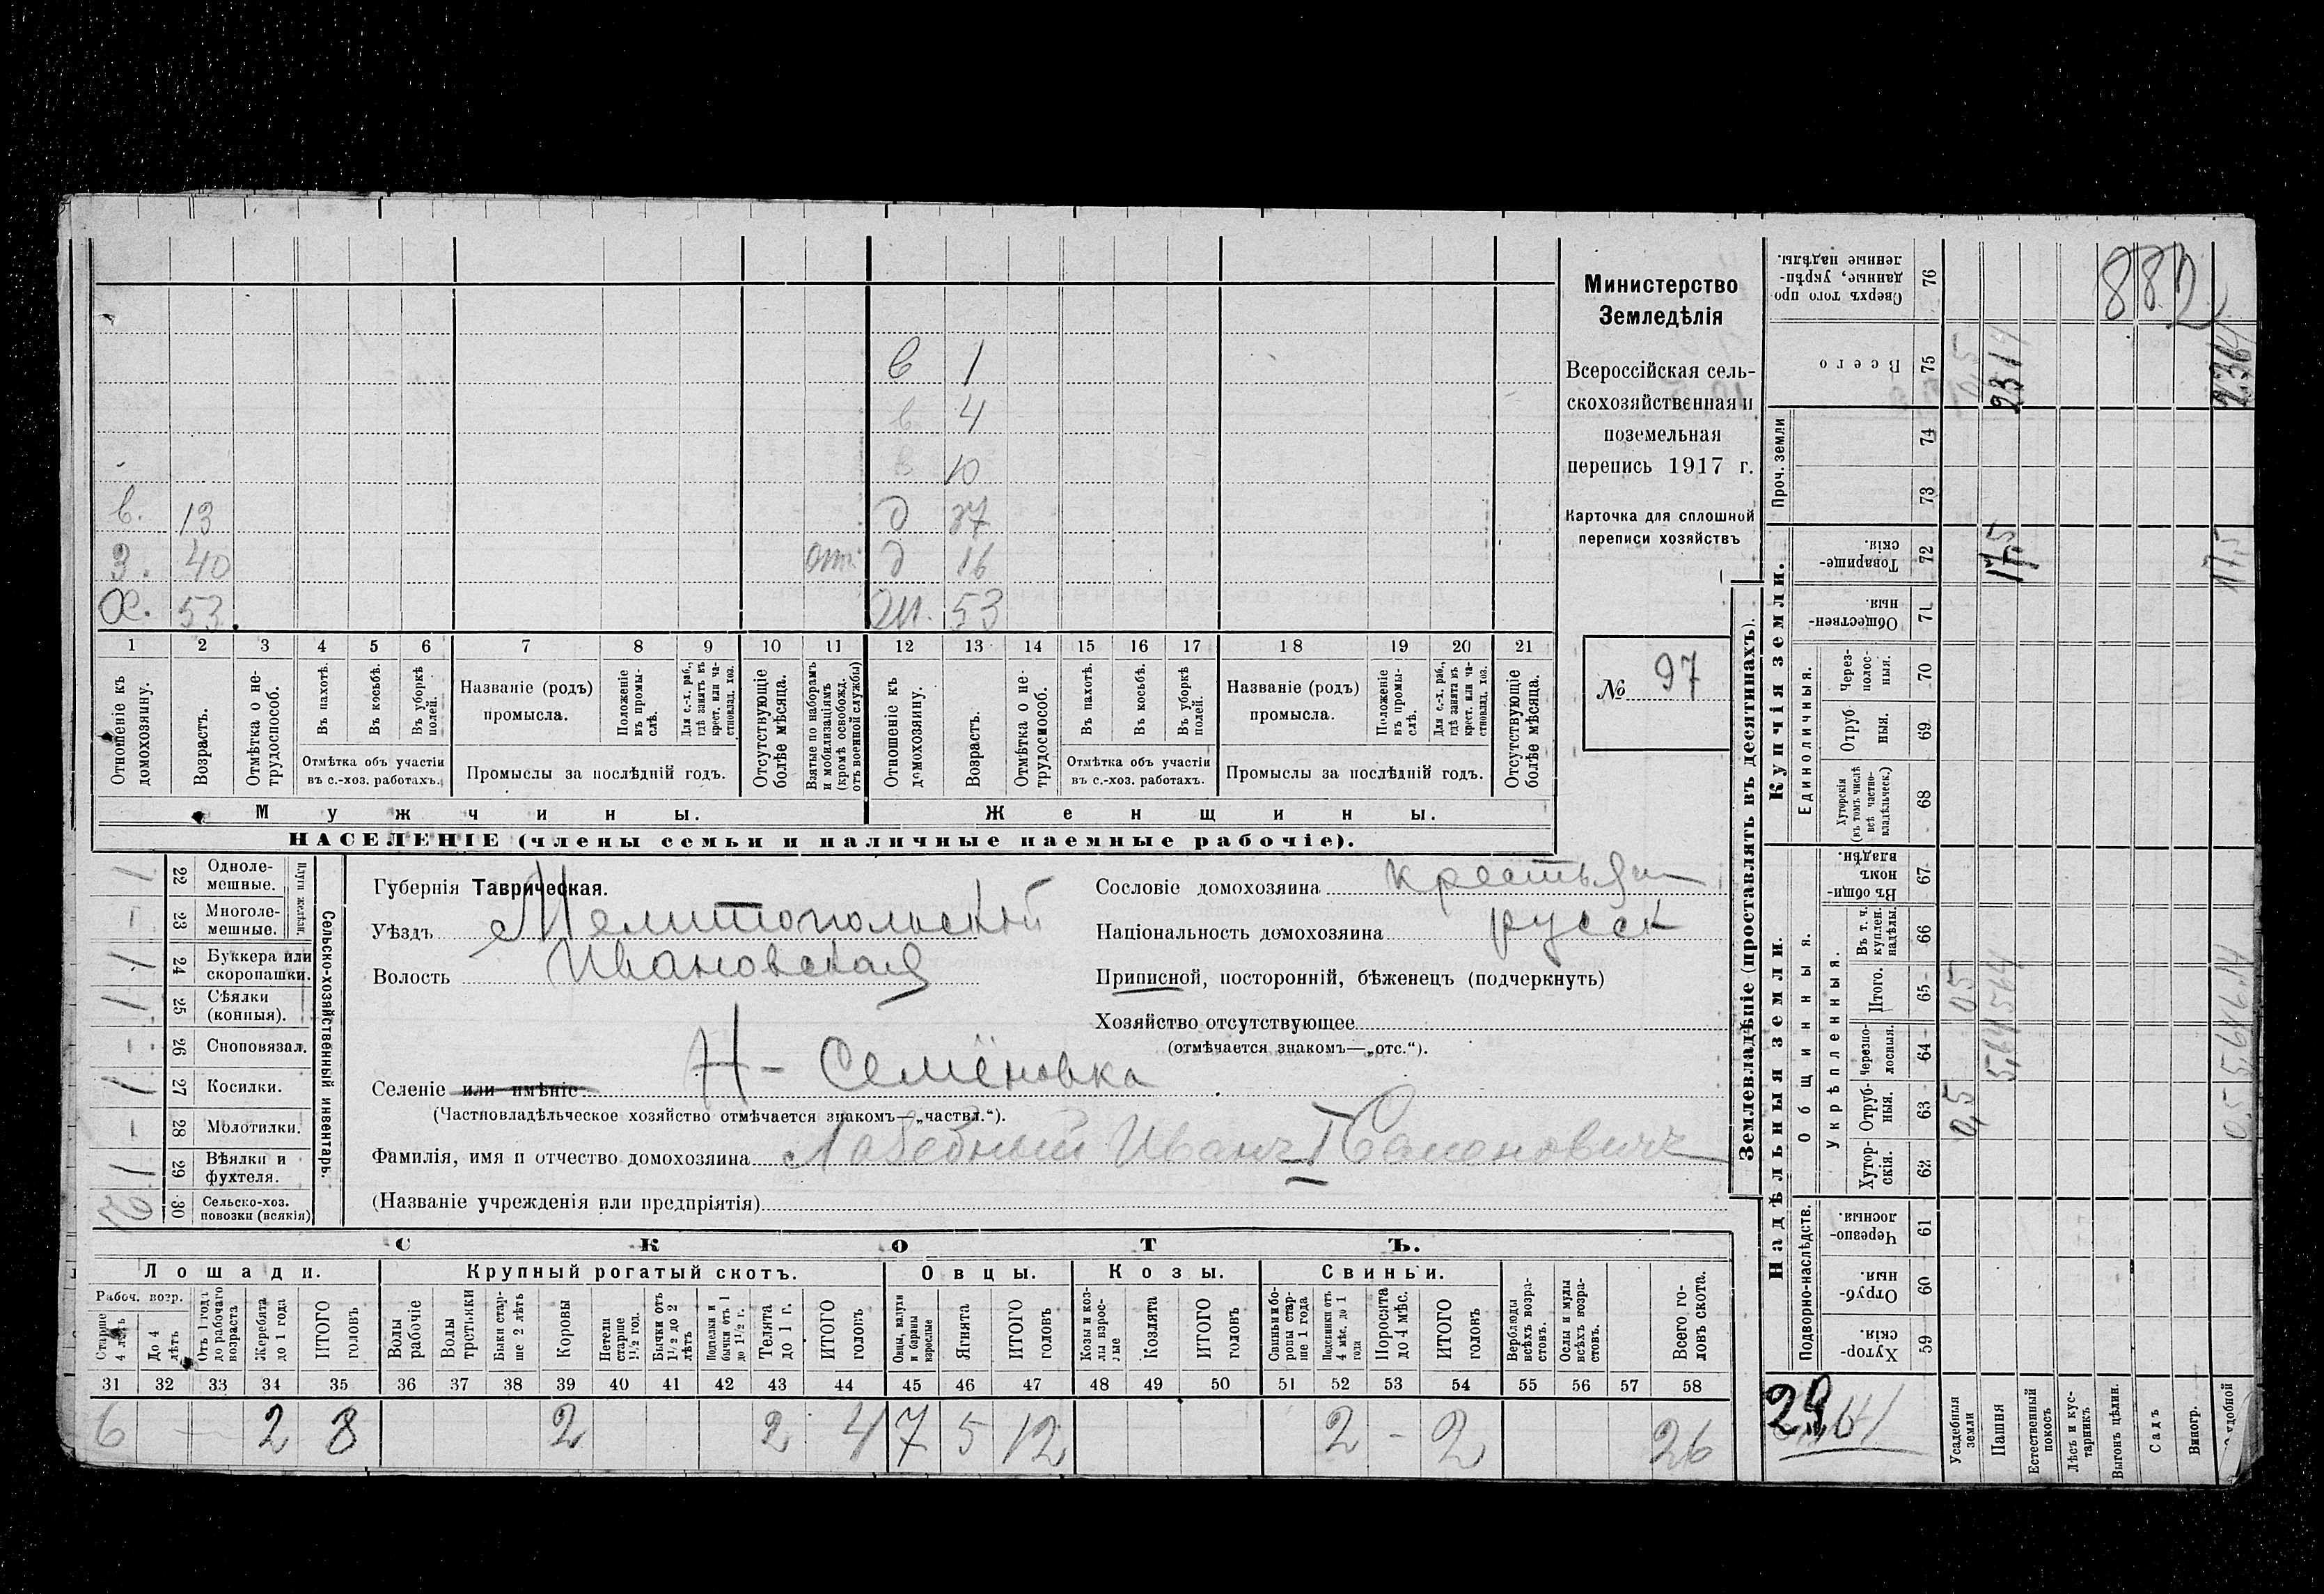 Министерство
Земледѣлія
Всероссійская сель-
скохозяйственная и
поземельная
перепись 1917 г.
Карточка для сплошной
переписи хозяйствъ
№ 97
в 1
в 4
в 10
в. 13 д 37
З. 40 отс д 16
Х. 53. М. 53
1 2 3 4 5 6 7 8 9 10 11 12 13 14 15 16 17 18 19 20 21
Отношеніе къ домохозяину.
Возрастъ.
Отмѣтка о не-трудоспособ.
Въ пахотѣ.
Въ косьбѣ.
Въ уборкѣ полей.
Отмѣтка объ участіи
въ с.-хоз. работахъ.
Названіе (родъ)
промысла.
Положеніе въ промы-слѣ.
Для с.-х. раб., гдѣ занятъ въ крест. или ча-стновлад. хоз.
Промыслы за послѣдній годъ.
Отсутствующіе болѣе мѣсяца.
Взятые по наборамъ и мобилизаціямъ (кромѣ освобожд. отъ военной службы)
Отношеніе къ домохозяину.
Возрастъ.
Отмѣтка о не-трудоспособ.
Въ пахотѣ.
Въ косьбѣ.
Въ уборкѣ полей.
Отмѣтка объ участіи
въ с.-хоз. работахъ.
Названіе (родъ)
промысла.
Положеніе въ промы-слѣ.
Для с.-х. раб., гдѣ занята въ крест. или ча-стновлад. хоз.
Промыслы за послѣдній годъ.
Отсутствующіе болѣе мѣсяца.
Мужчины. Женщины.
НАСЕЛЕНІЕ (члены семьи и наличные наемные рабочіе).
Сельско-хозяйственный инвентарь.
Плуги желѣзн.
1 22 Одноле-мешные.
- 23 Многоле-мешные.
1 24 Буккера или скоропашки.
1 25 Сѣялки (конныя).
- 26 Сноповязал.
1 27 Косилки.
- 28 Молотилки.
1 29 Вѣялки и фухтеля.
30 Сельско-хоз. повозки (всякія)
Губернія Таврическая.
Уѣздъ Мелитопольскій
Волость Ивановская
Селеніе или имѣніе Н- Семёновка
(Частновладѣльческое хозяйство отмѣчается знакомъ—„частвл.“).
Фамилія, имя и отчество домохозяина Лебедный Иванъ I Семеновичъ
(Названіе учрежденія или предпріятія)
Сословіе домохозяина крестьян
Національность домохозяина русск
Приписной, посторонній, бѣженецъ (подчеркнуть)
Хозяйство отсутствующее
(отмѣчается знакомъ—„отс.“).
СКОТЪ.
Лошади. Крупный рогатый скотъ. Овцы. Козы. Свиньи.
Рабоч. возр.
Старше 4 лѣтъ
До 4 лѣтъ
Отъ 1 года до рабочаго возраста
Жеребята до 1 года
ИТОГО головъ
Волы рабочіе
Волы третьяки
Быки стар-ше 2 лѣтъ
Коровы
Нетели старше 1½ год.
Бычки отъ 1½ до 2 лѣтъ
Подтелки и бычки отъ 1 до 1½ г.
Телята до 1 г.
ИТОГО головъ
Овцы, валухи и бараны взрослые
Ягнята
ИТОГО головъ
Козы и коз-лы взрос-лые
Козлята
ИТОГО головъ
Свиньи и бо-ровы стар-ше 1 года
Подсвинки отъ 4 мѣс. до 1 года
Поросята до 4 мѣс.
ИТОГО головъ
Верблюды всѣхъ возра-стовъ.
Ослы и мулы всѣхъ возра-стовъ.
Всего го-ловъ скота.
31 32 33 34 35 36 37 38 39 40 41 42 43 44 45 46 47 48 49 50 51 52 53 54 55 56 57 58
6 - - 2 8 2 2 4 7 5 12 2 - 2 26
Землевладѣніе (проставлять въ десятинахъ).
Надѣльныя земли. Купчія земли. Проч. земли
Подворно-наслѣдств. Общинныя. Укрѣпленныя. Единоличныя.
Хутор-скія. 59
Отруб-ныя. 60
Черезпо-лосныя. 61
Хутор-скія. 62
Отруб-ныя. 63
черезпо-лосныя. 64
Итого. 65
Въ т. ч. куплен. надѣлы. 66
Въ общи-нномъ владѣн. 67
Хуторскія (въ томъ числѣ всѣ частно-владѣльческ.) 68
Отруб-ныя. 69
Через-полос-ныя. 70
Обществен-ныя. 71
Товарище-скія. 72
73 74
Всего 75
Сверхъ того про-данные, укрѣп-ленные надѣлы. 76
Усадебныя земли 0,5 05 0,5
Пашня 5,64 564 17,5 2314
Естественный покосъ
Лѣсъ и кус-тарникъ
Выгонъ цѣлин.
Садъ
Виногр.
удобной 0,5 5,64 6,14 17,5 2364
882